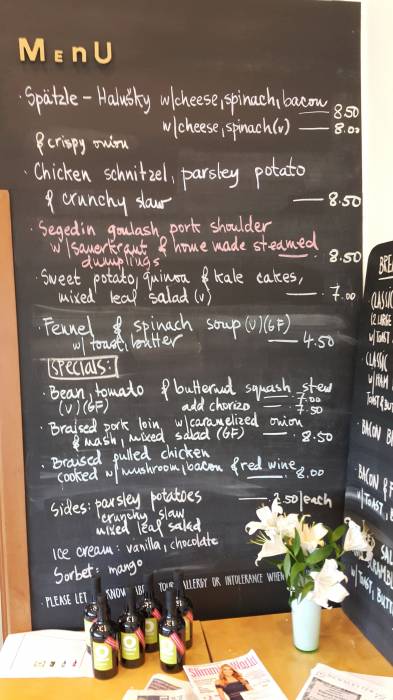 MEnU
· Spätzle – Halušky w/cheese, spinach, bacon — 8.50
w/cheese, spinach (v) — 8.00
& crispy onion
· Chicken schnitzel, parsley potato
& crunchy slaw — 8.50
· Segedin goulash, pork shoulder
w/ sauerkraut & home made steamed
dumplings — 8.50
· Sweet potato, quinoa & kale cakes,
mixed leaf salad (v) — 7.00
· Fennel & spinach soup (v)(GF)
w/ toast, butter — 4.50
SPECIALS:
· Bean, tomato & butternut squash stew
(v)(GF) — 7.00
add chorizo — 7.50
· Braised pork loin, w/caramelized onion
& mash, mixed salad (GF) — 8.50
· Braised pulled chicken
cooked w/mushroom, bacon & red wine 8.00
Sides: parsley potatoes — 2.50/each
crunchy slaw
mixed leaf salad
Ice cream: vanilla, chocolate
Sorbet: mango
· PLEASE LET KNOW YOUR ALLERGY OR INTOLERANCE WHEN
BRE
CLASSIC
(2 LARGE
w/ TOAST
CLASSIC
w/ HAM
TOAST & BUT
· BACON B
· BACON & F
w/ TOAST,
SAL
SCRAMBL
w/ TOAST, BUTT
Slimming World